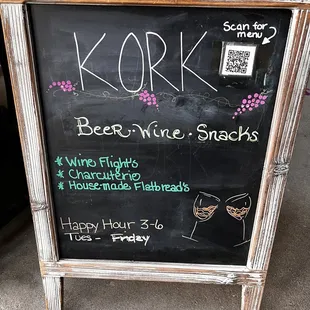 Scan for
menu
KORK
Beer · Wine · Snacks
* Wine Flight's
* Charcuterie
* House-made Flatbread's
Happy Hour 3-6
Tues - Friday